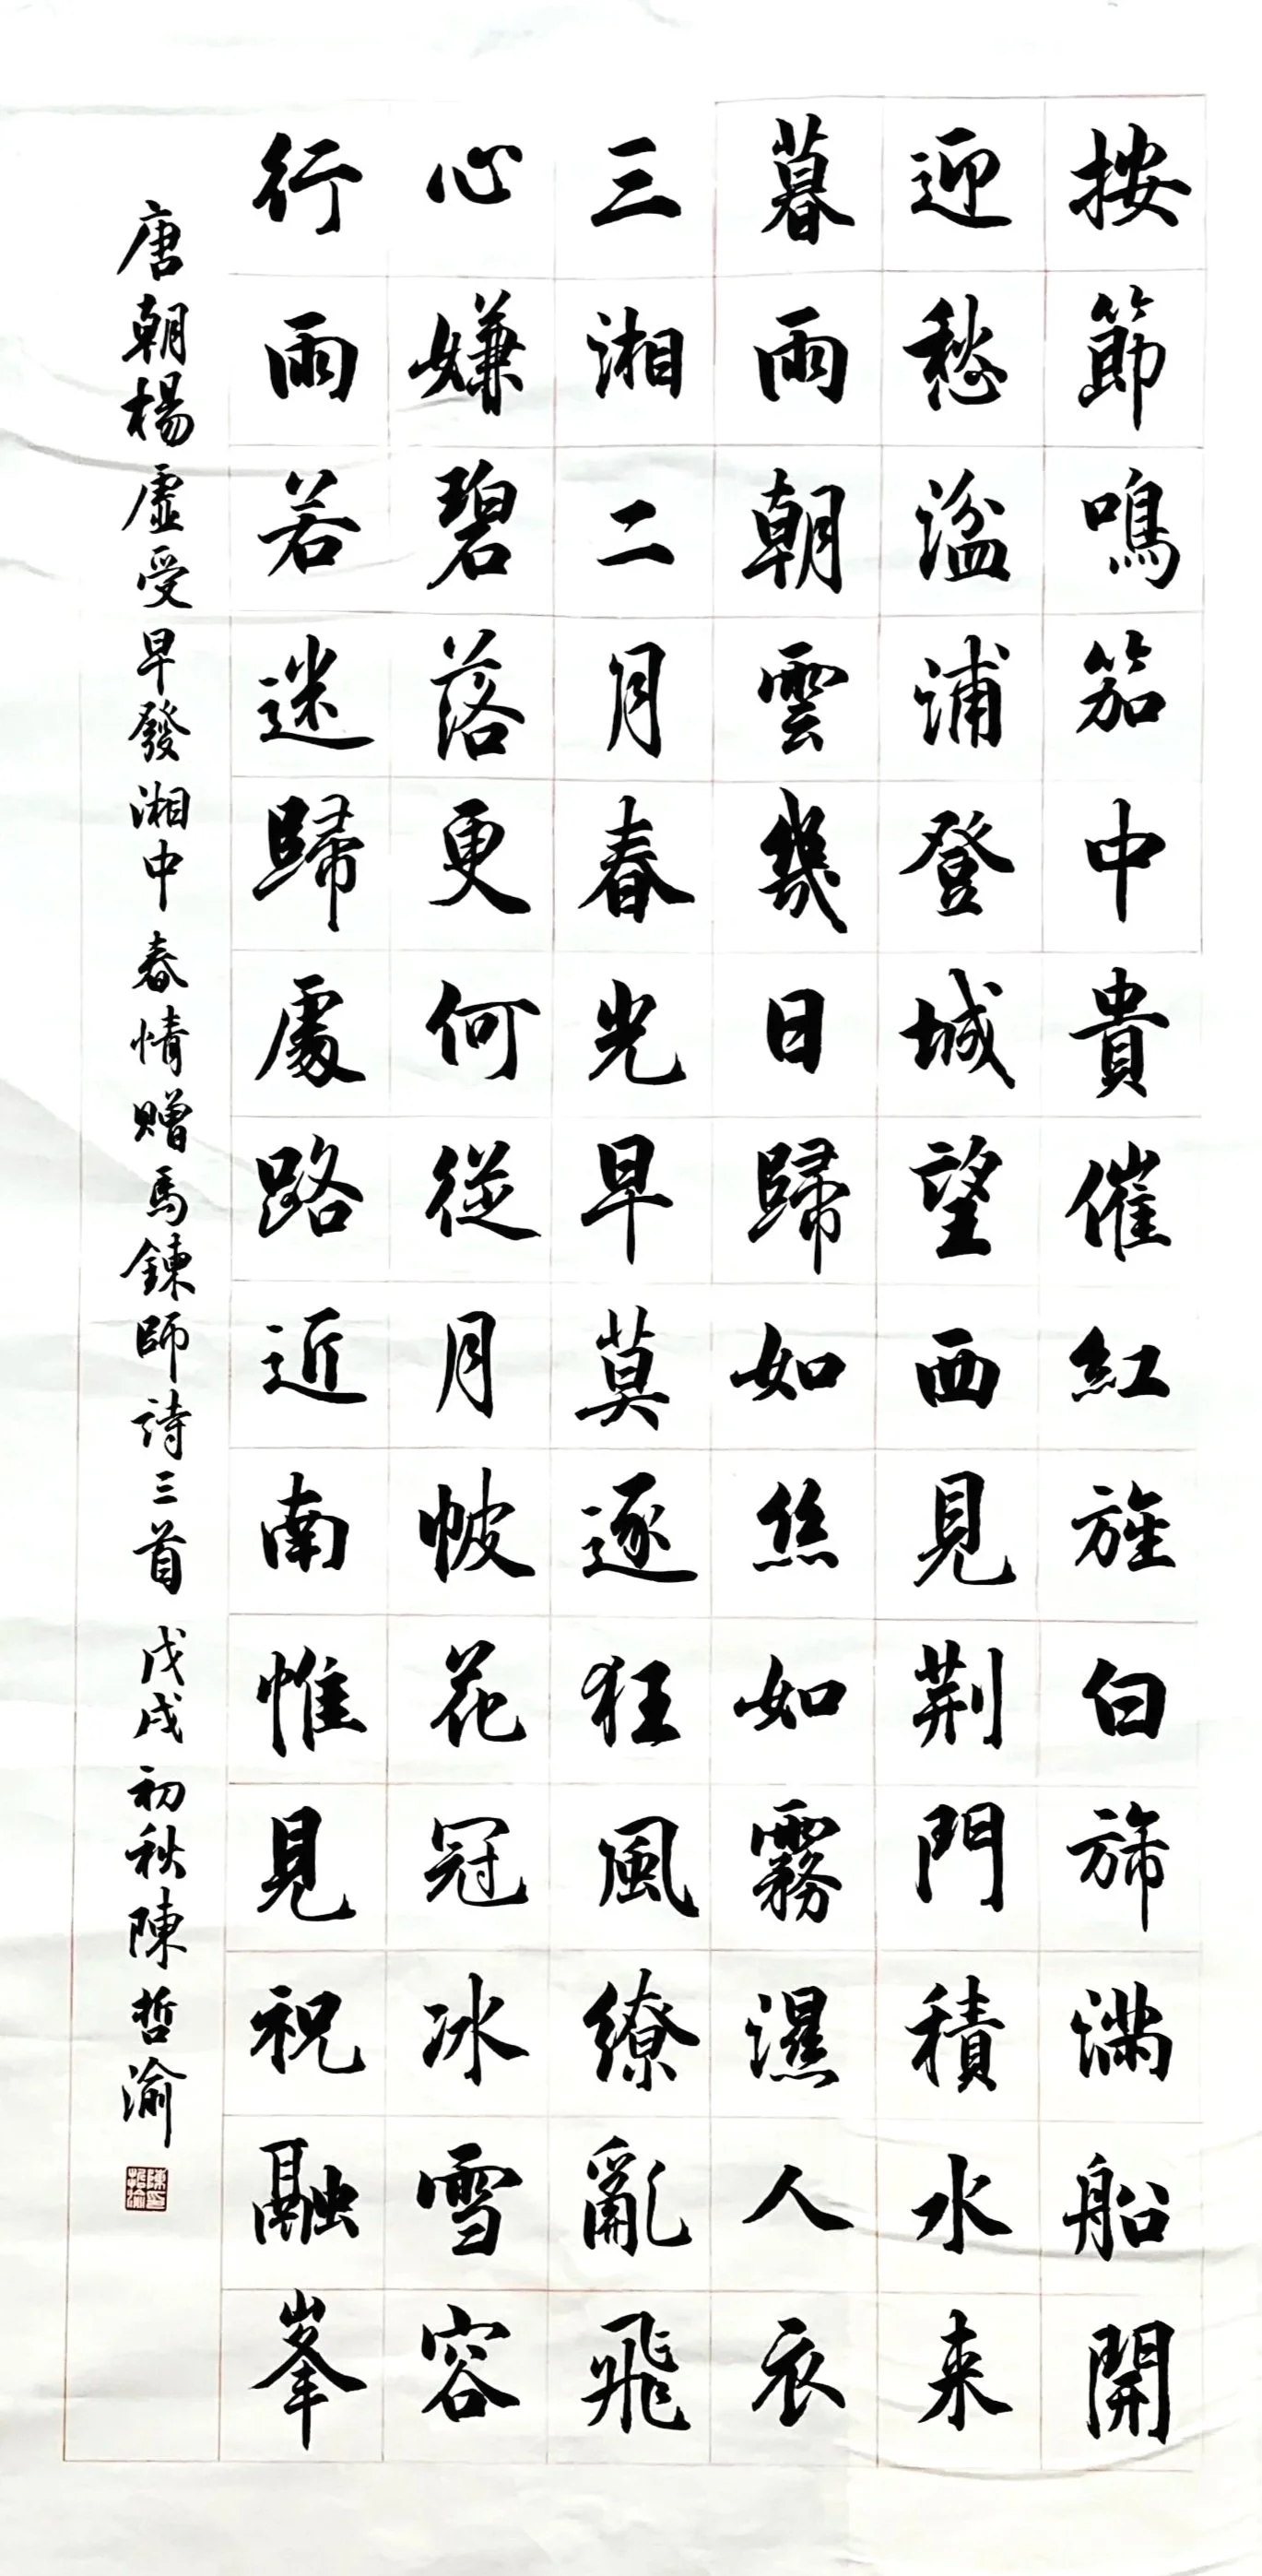 按節鳴笳中貴催紅旌白旆滿船開
迎愁湓浦登城望西見荆門積水来
暮雨朝雲幾日歸如絲如霧濕人衣
三湘二月春光早莫逐狂風繚亂飛
心嫌碧落更何從月帔花冠冰雪容
行雨若迷歸處路近南惟見祝融峯
唐朝楊虛受早發湘中春情贈馬鍊師詩三首 戊戌初秋陳哲渝